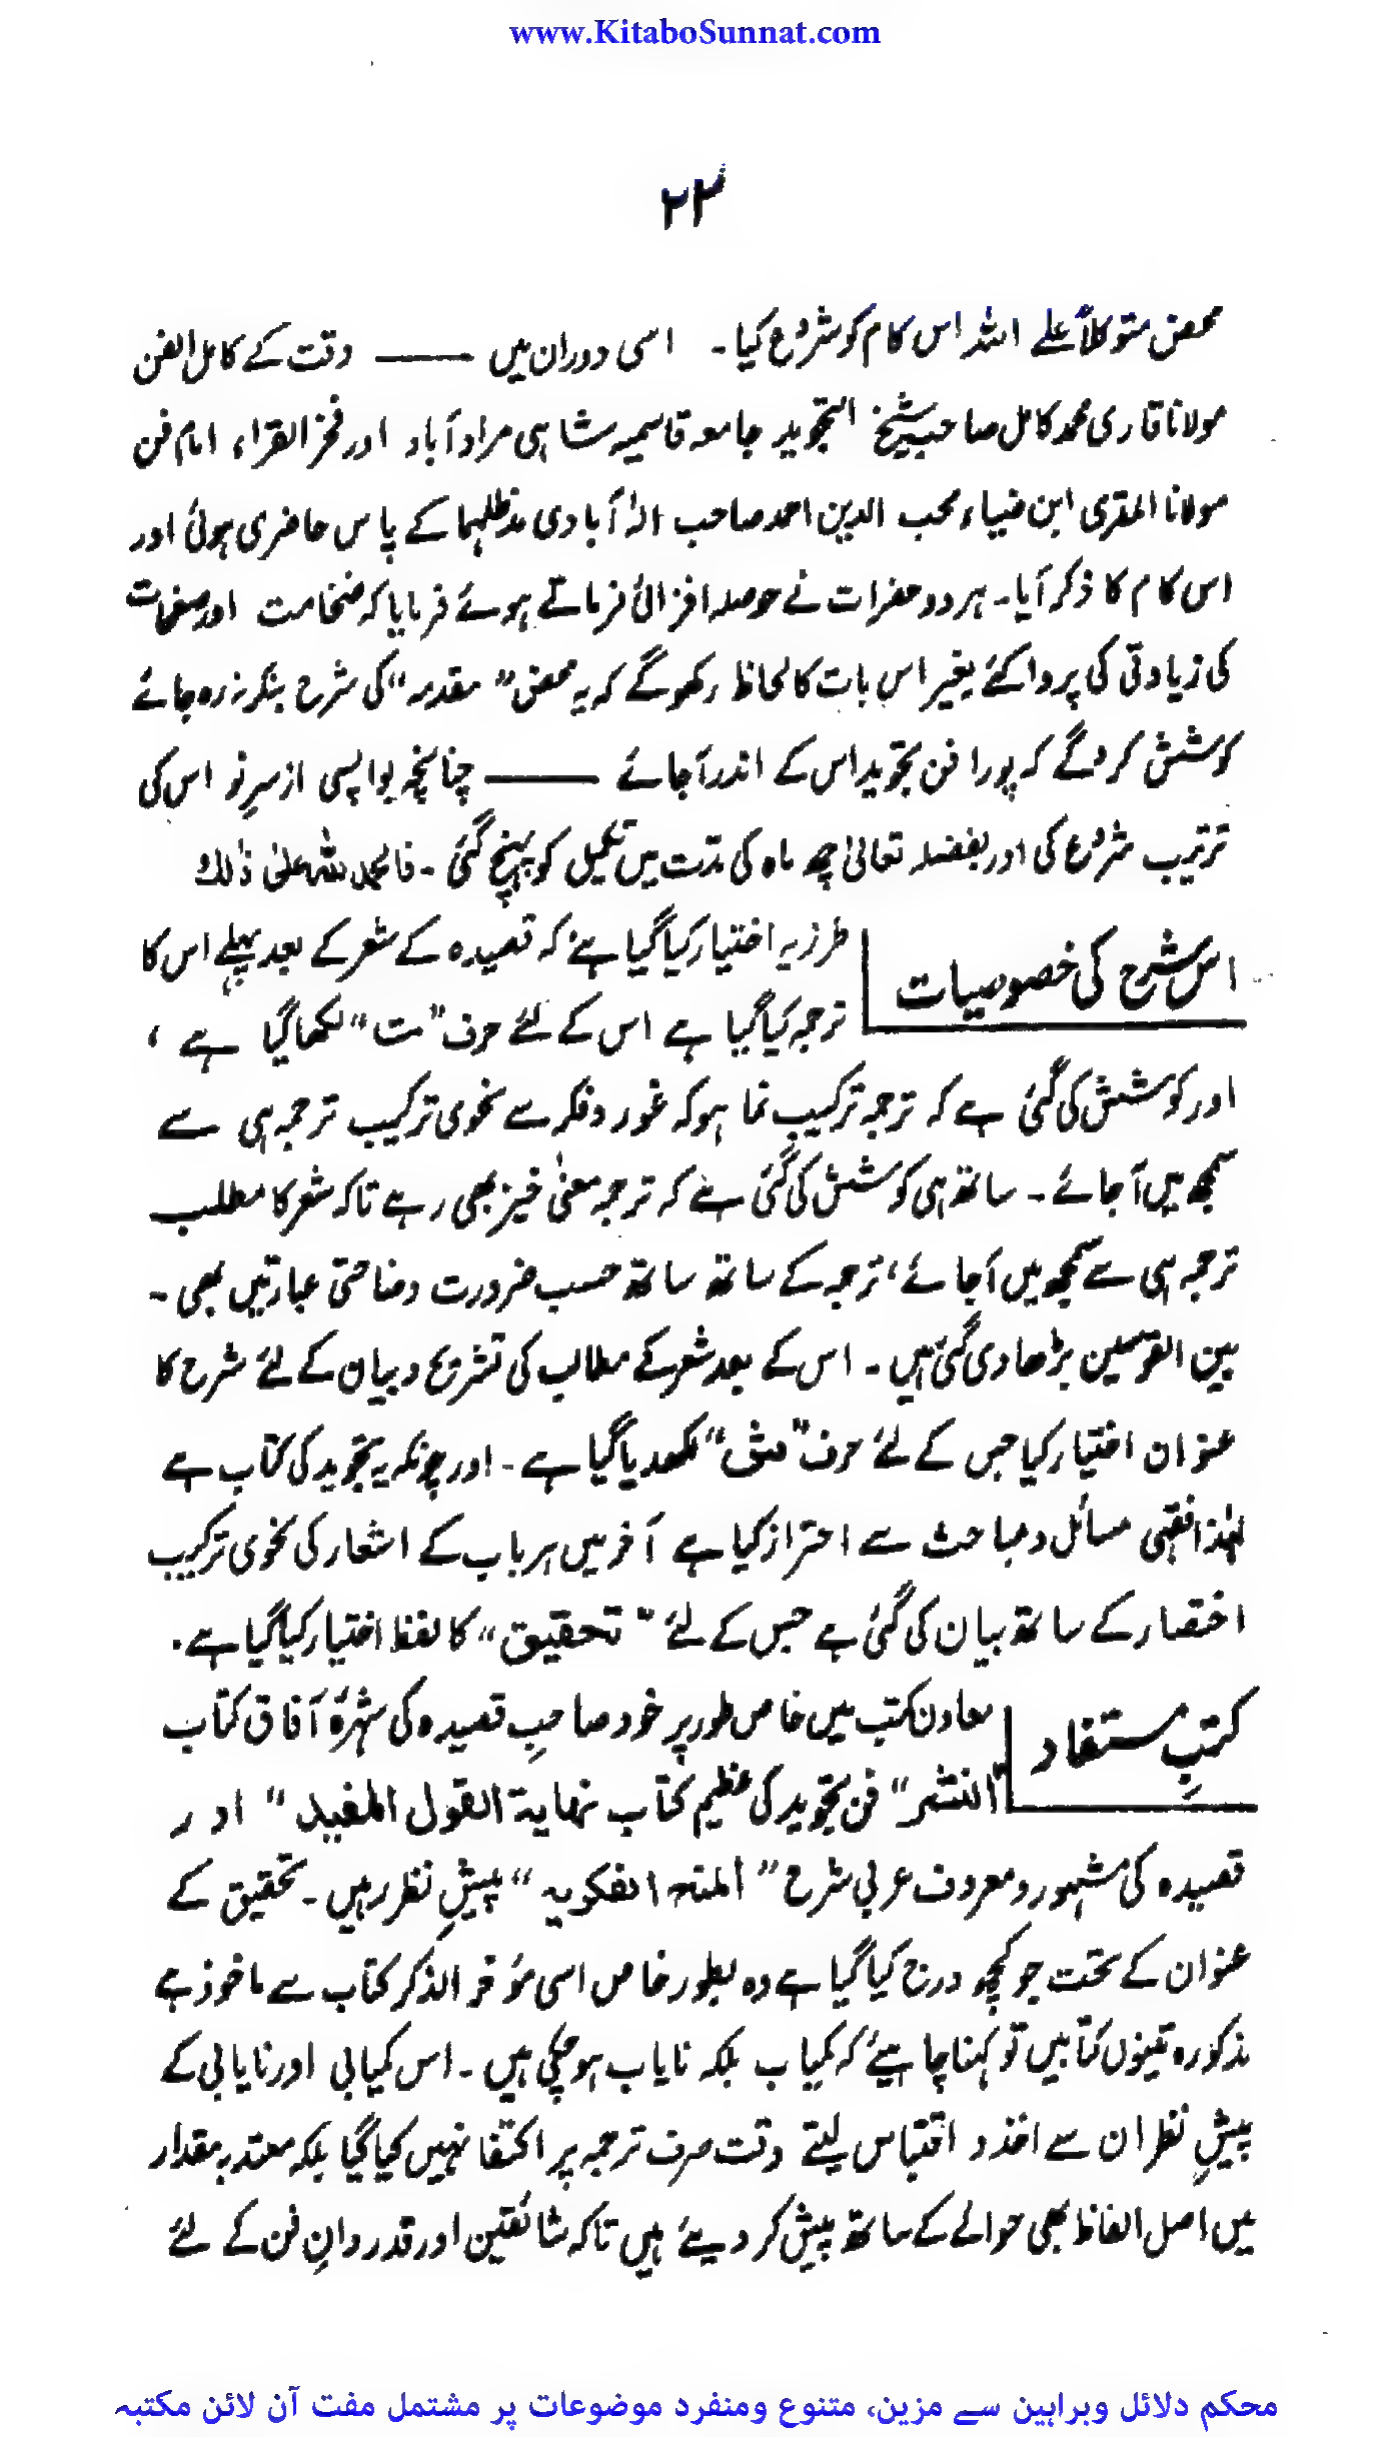 www.KitaboSunnat.com
۲۳
محض متوکلاً علے اللہ اس کام کو شروع کیا۔ اسی دوران میں ——— وقت کے کامل الفن
مولانا قاری محمد کامل صاحب شیخ التجوید جامعہ قاسمیہ شاہی مرادآباد اور فخر القراء امام فن
مولانا المقری ابن ضیاء محب الدین احمد صاحب الٰہ آبادی مدظلہما کے پاس حاضری ہوئی اور
اس کام کا ذکر آیا۔ ہر دو حضرات نے حوصلہ افزائی فرماتے ہوئے فرمایا کہ ضخامت اور صفحات
کی زیادتی کی پروا کئے بغیر اس بات کا لحاظ رکھو گے کہ یہ محض ”مقدمہ“ کی شرح بنکر نہ رہ جائے
کوشش کرو گے کہ پورا فن تجوید اس کے اندر آجائے ——— چنانچہ بواپسی ازسرِنو اس کی
ترتیب شروع کی اور بفضلہ تعالیٰ چھ ماہ کی مدّت میں تکمیل کو پہنچ گئی۔ فالحمد للہ علیٰ ذٰلک
اس شرح کی خصوصیات
طرز یہ اختیار کیا گیا ہے کہ قصیدہ کے شعر کے بعد پہلے اس کا
ترجمہ کیا گیا ہے اس کے لئے حرف ”ت“ لکھا گیا ہے ،
اور کوشش کی گئی ہے کہ ترجمہ ترکیب نما ہو کہ غور و فکر سے نحوی ترکیب ترجمہ ہی سے
سمجھ میں آجائے۔ ساتھ ہی کوشش کی گئی ہے کہ ترجمہ معنیٰ خیز بھی رہے تاکہ شعر کا مطلب
ترجمہ ہی سے سمجھ میں آجائے، ترجمہ کے ساتھ ساتھ حسب ضرورت وضاحتی عبارتیں بھی۔
بین القوسین بڑھا دی گئی ہیں۔ اس کے بعد شعر کے مطالب کی تشریح و بیان کے لئے شرح کا
عنوان اختیار کیا جس کے لئے حرف ”ش“ لکھدیا گیا ہے۔ اور چونکہ یہ تجوید کی کتاب ہے
لہٰذا فقہی مسائل و مباحث سے احتراز کیا ہے آخر میں ہر باب کے اشعار کی نحوی ترکیب
اختصار کے ساتھ بیان کی گئی ہے جس کے لئے ”تحقیق“ کا لفظ اختیار کیا گیا ہے۔
کتبِ مستفاد
معاون کتب میں خاص طور پر خود صاحبِ قصیدہ کی شہرۂ آفاق کتاب
”النشر“ فن تجوید کی عظیم کتاب نہایۃ القول المفید“ اور
قصیدہ کی مشہور و معروف عربی شرح ”المنح الفکریہ“ پیشِ نظر رہیں۔ تحقیق کے
عنوان کے تحت جو کچھ درج کیا گیا ہے وہ بطور خاص اسی مؤخر الذکر کتاب سے ماخوذ ہے
مذکورہ تینوں کتابیں تو کہنا چاہیئے کہ کمیاب بلکہ نایاب ہو چکی ہیں۔ اس کمیابی اور نایابی کے
پیشِ نظر ان سے اخذ و اقتباس لیتے وقت صرف ترجمہ پر اکتفا نہیں کیا گیا بلکہ معتدبہ مقدار
میں اصل الفاظ بھی حوالے کے ساتھ پیش کر دیئے ہیں تاکہ شائقین اور قدردانِ فن کے لئے
محکم دلائل وبراہین سے مزین، متنوع ومنفرد موضوعات پر مشتمل مفت آن لائن مکتبہ